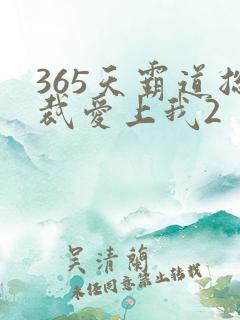 365天霸道总
裁爱上我2
吴清蘭
未经同意禁止转载